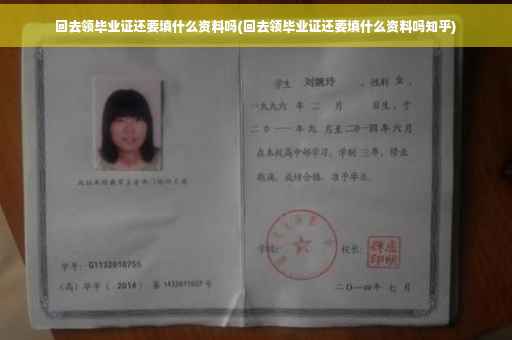 回去领毕业证还要填什么资料吗(回去领毕业证还要填什么资料吗知乎)
学生 刘婉玲 ,性别 女 ,
一九九六 年 二 月 日生,于
二〇一一年九 月至二〇一四年六月
在本校高中部学习,学制 三年,修业
期满,成绩合格,准予毕业。
学号: G1132010755
(高)毕字( 2014 )第 1432011027 号
学校: 校长:
二〇一四年 七 月